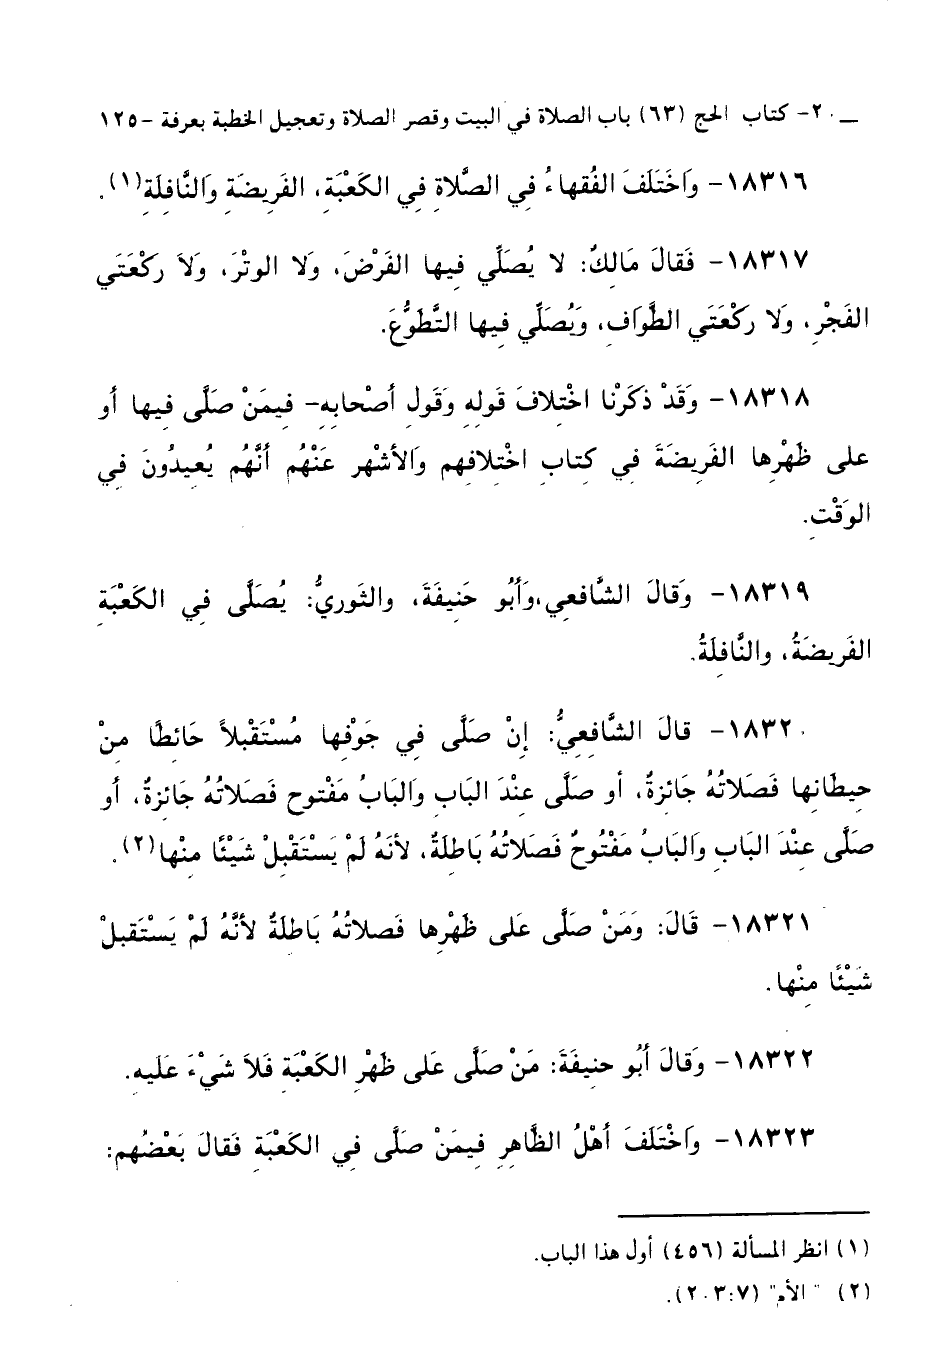 ــ ٢٠- كتاب الحج (٦٣) باب الصلاة في البيت وقصر الصلاة وتعجيل الخطبة بعرفة -١٢٥
١٨٣١٦- وَاخْتَلَفَ الفُقهاءُ فِي الصَّلاةِ فِي الكَعْبَةِ، الفَرِيضَةِ وَالنَّافِلَةِ(١).
١٨٣١٧- فَقالَ مَالِكٌ: لا يُصَلِّي فِيها الفَرْضَ، وَلا الوتْرَ، وَلاَ ركْعَتَي
الفَجْرِ، وَلا ركْعَتَي الطَّوَافِ، وَيُصَلِّي فِيها التَّطَوُّعَ.
١٨٣١٨- وَقَدْ ذكَرْنا اخْتِلافَ قَولِهِ وَقَولِ أصْحابِهِ- فِيمَنْ صَلَّى فِيها أو
على ظَهْرِها الفَرِيضَةَ فِي كِتابِ اخْتِلافِهِم وَالأشْهر عَنْهُم أنَّهُم يُعِيدُونَ فِي
الوَقْتِ.
١٨٣١٩- وَقالَ الشَّافعِي،وَأبُو حَنِيفَةَ، والثَوريُّ: يُصَلَّى فِي الكَعْبَةِ
الفَرِيضَةُ، والنَّافِلَةُ.
١٨٣٢٠- قالَ الشَّافِعِيُّ: إنْ صَلَّى فِي جَوْفِها مُسْتَقْبِلاً حَائطًا مِنْ
حِيطَانِها فَصَلاتُهُ جَائزةٌ، أو صَلَّى عِنْدَ البَابِ وَالبَابُ مَفْتوح فَصَلاتُهُ جَائزةٌ، أو
صَلَّى عِنْدَ البَابِ وَالبَابُ مَفْتُوحٌ فَصَلاتُهُ بَاطلَةٌ، لأنَهُ لَمْ يَسْتَقْبِلْ شَيْئًا مِنْها(٢).
١٨٣٢١- قَالَ: وَمَنْ صَلَّى عَلى ظَهْرِها فَصلاتُهُ بَاطلةٌ لأنَّهُ لَمْ يَسْتَقبلْ
شَيْئًا مِنْها.
١٨٣٢٢- وَقالَ أبُو حنِيفَةَ: مَنْ صَلَّى عَلى ظَهْرِ الكَعْبَةِ فَلاَ شَيْءَ عَليهِ.
١٨٣٢٣- وَاخْتَلَفَ أهْلُ الظَّاهِرِ فِيمَنْ صَلَّى فِي الكَعْبَةِ فَقالَ بَعْضُهم:
(١) انظر المسألة (٤٥٦) أول هذا الباب.
(٢) "الأم" (٢٠٣:٧).